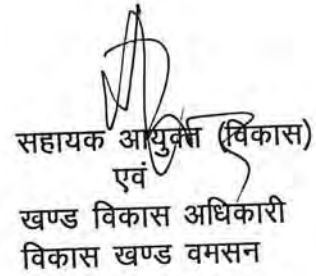 सहायक आयुक्त (विकास)
एवं
खण्ड विकास अधिकारी
विकास खण्ड वमसन